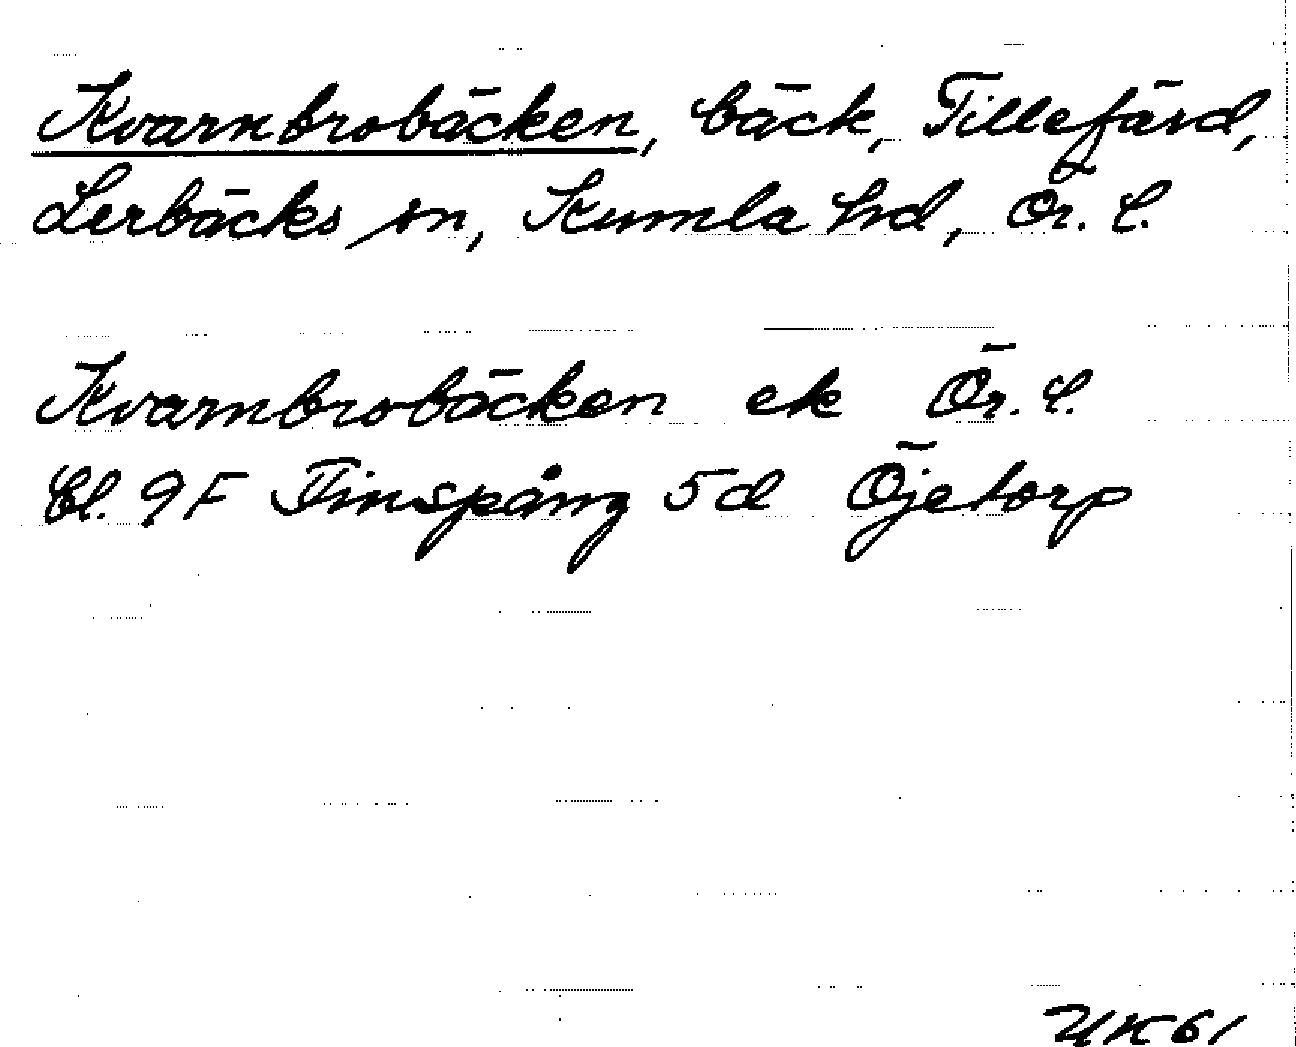 Kvarnbrobäcken, bäck, Tillefärd,
Lerbäcks sn, Kumla hd, Ör. l.
Kvarnbrobäcken ek Ör. l.
Bl. 9F Finspång 5d Öjetorp
UK61